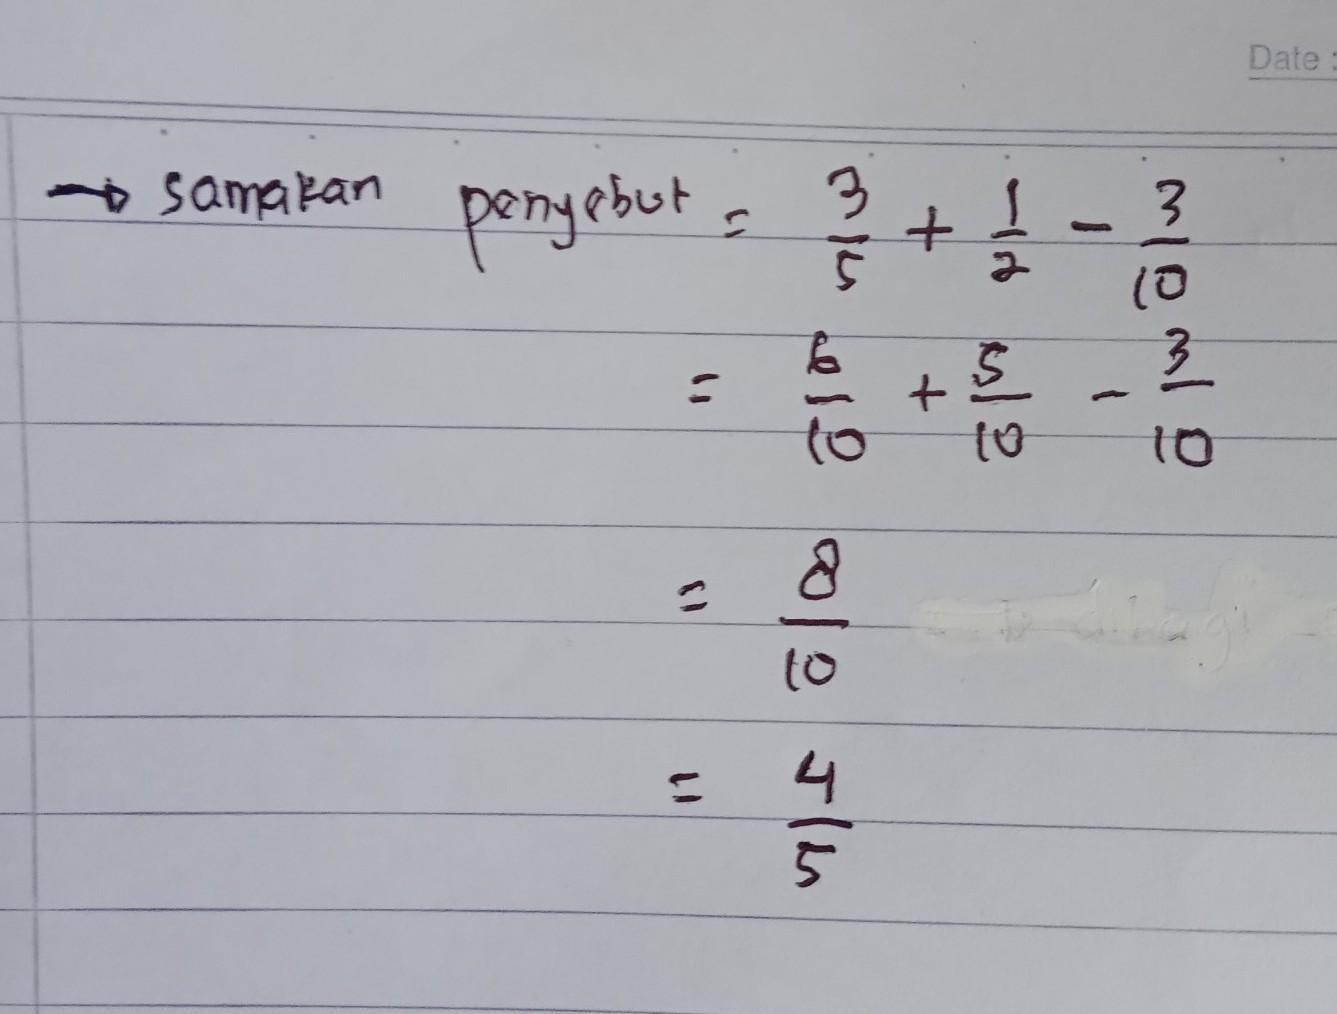 Date :
→ samakan penyebut = 3/5 + 1/2 - 3/10
= 6/10 + 5/10 - 3/10
= 8/10
= 4/5